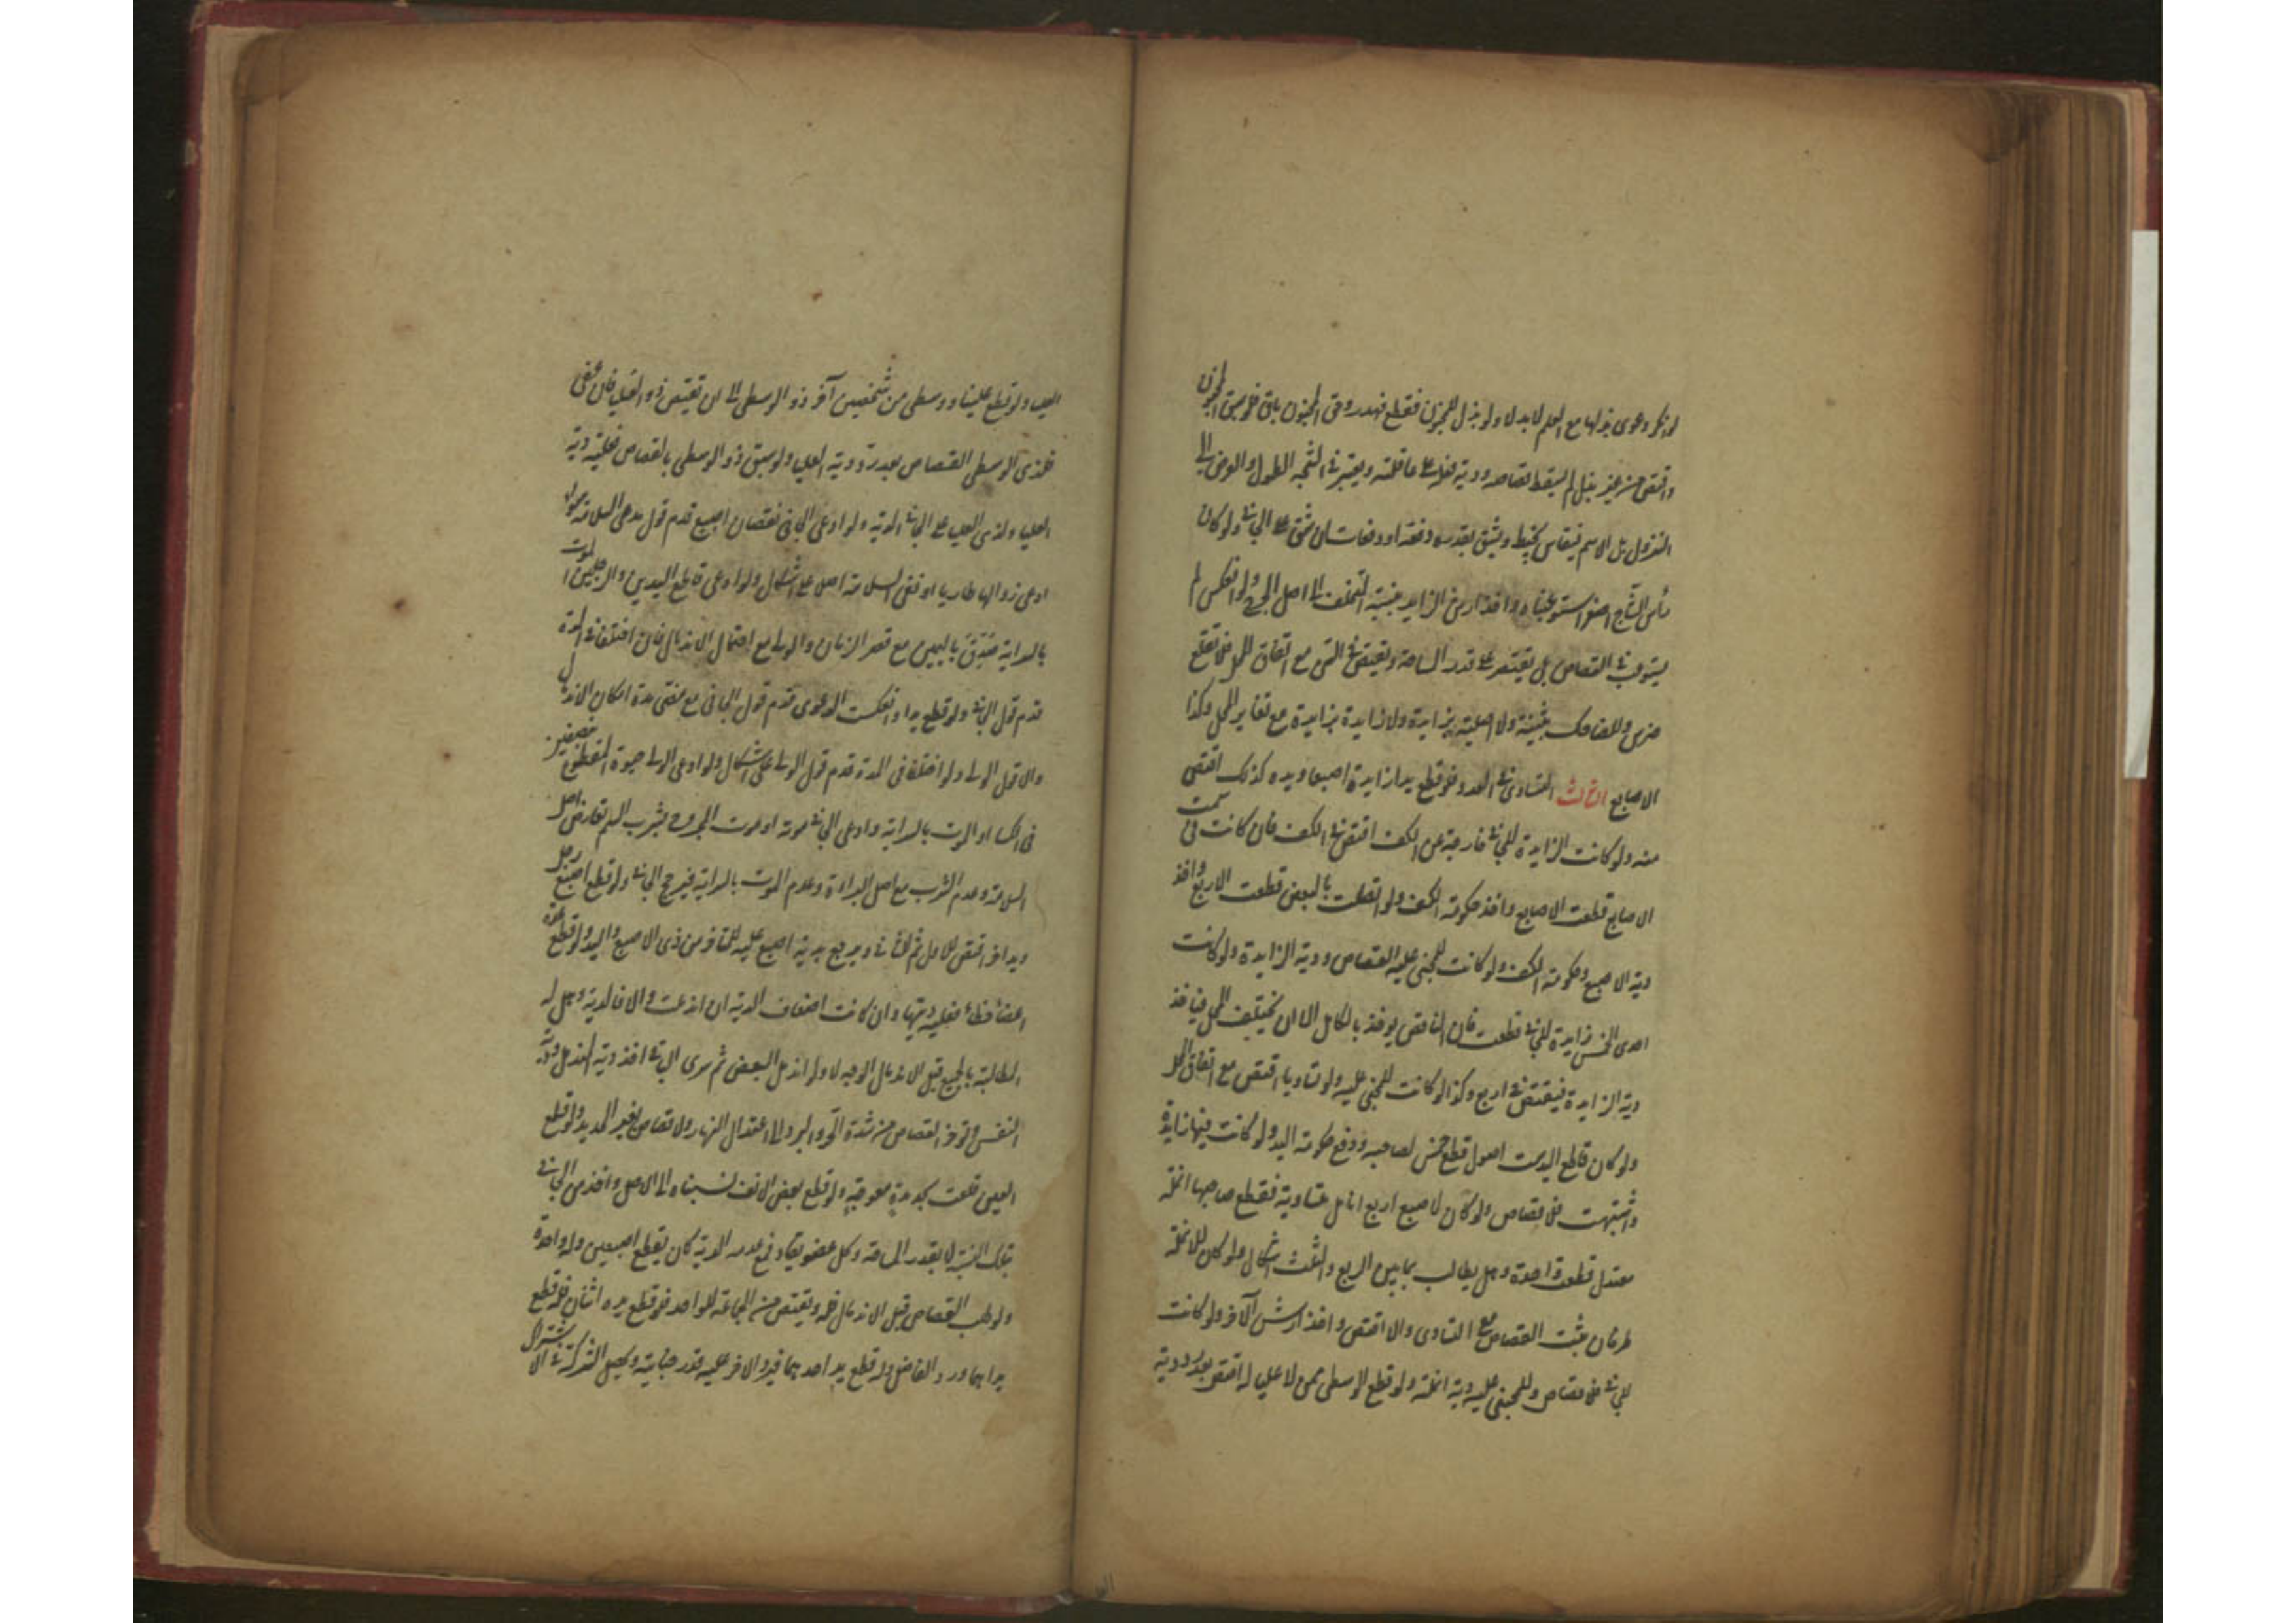 لو انكر دعوى بذلها مع العلم لا بدلا ولو بذل للمجنون فقطع فهدر وحق المجنون باق فلو سبق المجنون
واقتص من غير بذل لم يسقط قصاصه ودية فعله على عاقلته ويعتبر في الشجة الطول والعرض لا
النزول بل الاسم فيقاس بخيط ويشق بقدره دفعة او دفعات ان شق على الجاني ولو كان
رأس الشاج اصغر استوعبناه واخذ ارش الزايد بنسبة المتخلف الى اصل الجرح ولو انعكس لم
يستوعب في القصاص بل يقتصر على قدر المساحة ويقتص في السن مع اتفاق المحل فلا تقلع
ضرس وللضاحك بثنية ولا اصلية بزايدة ولا زايدة بزايدة مع تغاير المحل وكذا
الاصابع الثالث التساوي في العدد فلو قطع يدا زايدة اصبعا ويده كذلك اقتص
منه ولو كانت الزايدة للجاني خارجة عن الكف اقتص في الكف فان كانت في سمت
الاصابع قطعت الاصابع واخذ حكومة الكف ولو اتصلت بالبعض قطعت الاربع واخذ
دية الاصبع وحكومة الكف ولو كانت للمجني عليه القصاص ودية الزايدة ولو كانت
احدى الخمس زايدة للجاني قطعت فان الناقص يؤخذ بالكامل الا ان يختلف المحل فياخذ
دية الزايدة فيقتص في اربع وكذا لو كانت للمجني عليه ولو تساويا اقتص مع اتفاق المحل
ولو كان قاطع اليد ست اصول قطع خمس لصاحبه ودفع حكومة اليد ولو كانت فيها زايدة
واشتبهت فلا قصاص ولو كان لاصبع اربع انامل متساوية فقطع صاحبها انملة
معتدل قطعت واحدة وهل يطالب بما بين الربع والثلث اشكال ولو كان للانملة
طرفان يثبت القصاص مع التساوي والا اقتص واخذ ارش الآخر ولو كانت
للجاني فلا قصاص وللمجني عليه دية انملة ولو قطع الوسطى ممن لا عليا له اقتص بعد رد دية
العليا ولو قطع عليا ووسطى من شخصين آخر ذو الوسطى الى ان يقتص ذو العليا فان عفى
فلذي الوسطى القصاص بعد رد دية العليا ولو سبق ذو الوسطى بالقصاص فعليه دية
العليا ولذي العليا على الجاني الدية ولو ادعى الجاني نقصان اصبع قدم قول مدعى السلامة سواء
ادعى زوالها طاريا او نفى السلامة اصلا على اشكال ولو ادعى قاطع اليدين والرجلين الموت
بالسراية صدق باليمين مع قصر الزمان والولي مع احتمال الاندمال فان اختلفا في المدة
قدم قول الجاني ولو قطع يدا وانعكست الدعوى قدم قول الجاني مع مضي مدة امكان الاندمال
والا قول الولي ولو اختلفا في المدة قدم قول الولي على اشكال ولو ادعى الولي حيوة المقطوع بنصفين
في الكساء او الموت بالسراية وادعى الجاني موته او موت المجروح بشرب السم تعارض اصل
السلامة وعدم الشرب مع اصل البراءة وعدم الموت بالسراية فيرجح الجاني ولو قطع اصبع رجل
ويد اخر اقتص للاول ثم للثاني ويرجع بدية اصبع عليه للمتاخر من ذي الاصبع واليد ولو قطع عدة
اعضاء خطأ فعليه ديتها وان كانت اضعاف الدية ان اندملت والا فالدية وهل له
المطالبة بالجميع قبل الاندمال الوجه لا ولو اندمل البعض ثم سرى الباقي اخذ دية المندمل ودية
النفس ويؤخر القصاص من شدة الحر والبرد الى اعتدال النهار ولا قصاص بغير الحديد ولو قطع
العين قلعت بحديدة معوجة ولو قطع بعض الانف نسبناه الى الاصل واخذ من الجاني
بتلك النسبة لا بقدر المساحة وكل عضو يقاد فمع عدمه الدية كان يقطع اصبعين وله واحدة
ولو طلب القصاص قبل الاندمال فله ويقتص من الجماعة للواحد فلو قطع يده اثنان فله قطع
يديهما ورد الفاضل وله قطع يد احدهما فيرد الاخر عليه قدر جنايته ويحصل الشركة في الاشتراك